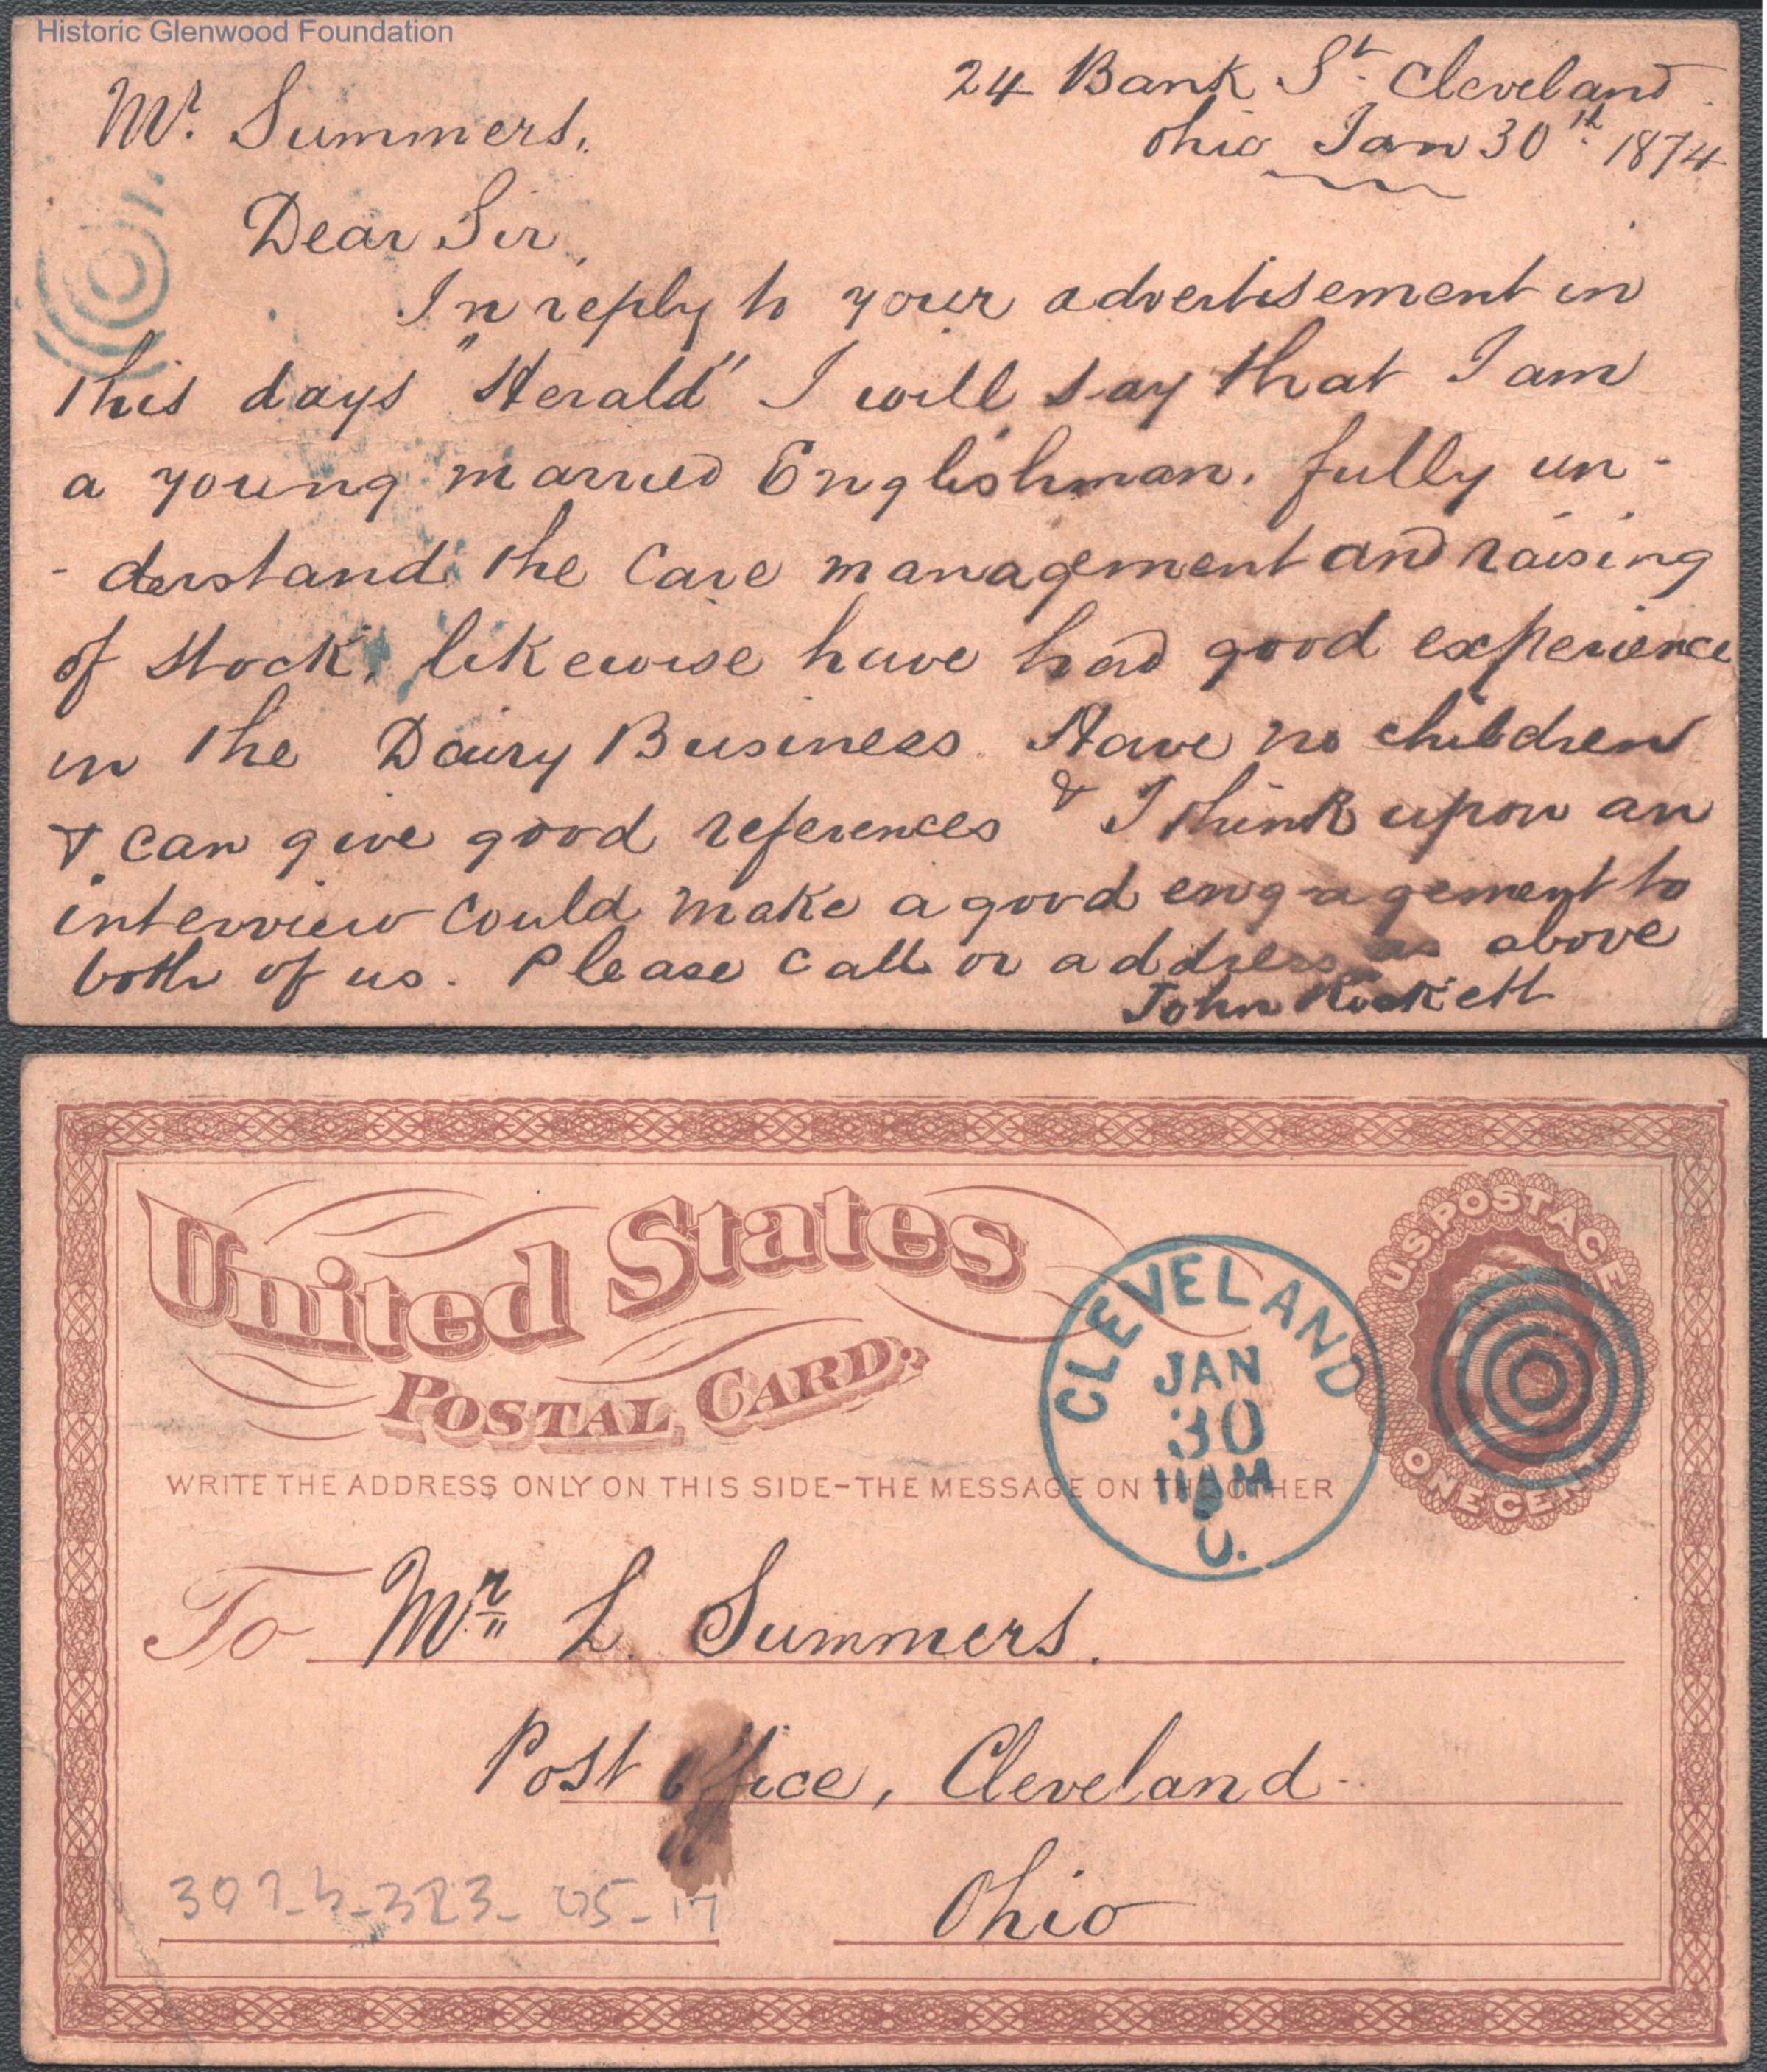 Historic Glenwood Foundation
24 Bank St. Cleveland
Ohio Jan 30th. 1874
Mr. Summers,
Dear Sir,
In reply to your advertisement in
this days "Herald" I will say that I am
a young married Englishman, fully un-
-derstand the Care management and raising
of Stock, likewise have had good experience
in the Dairy Business. Have no children
& can give good references & I think upon an
interview could make a good engagement to
both of us. Please call or address as above
John
United States
POSTAL CARD.
U.S. POSTAGE
ONE CENT
CLEVELAND
JAN
30
11 AM
O.
WRITE THE ADDRESS ONLY ON THIS SIDE-THE MESSAGE ON THE OTHER
To Mr. L. Summers.
Post Office, Cleveland.
Ohio